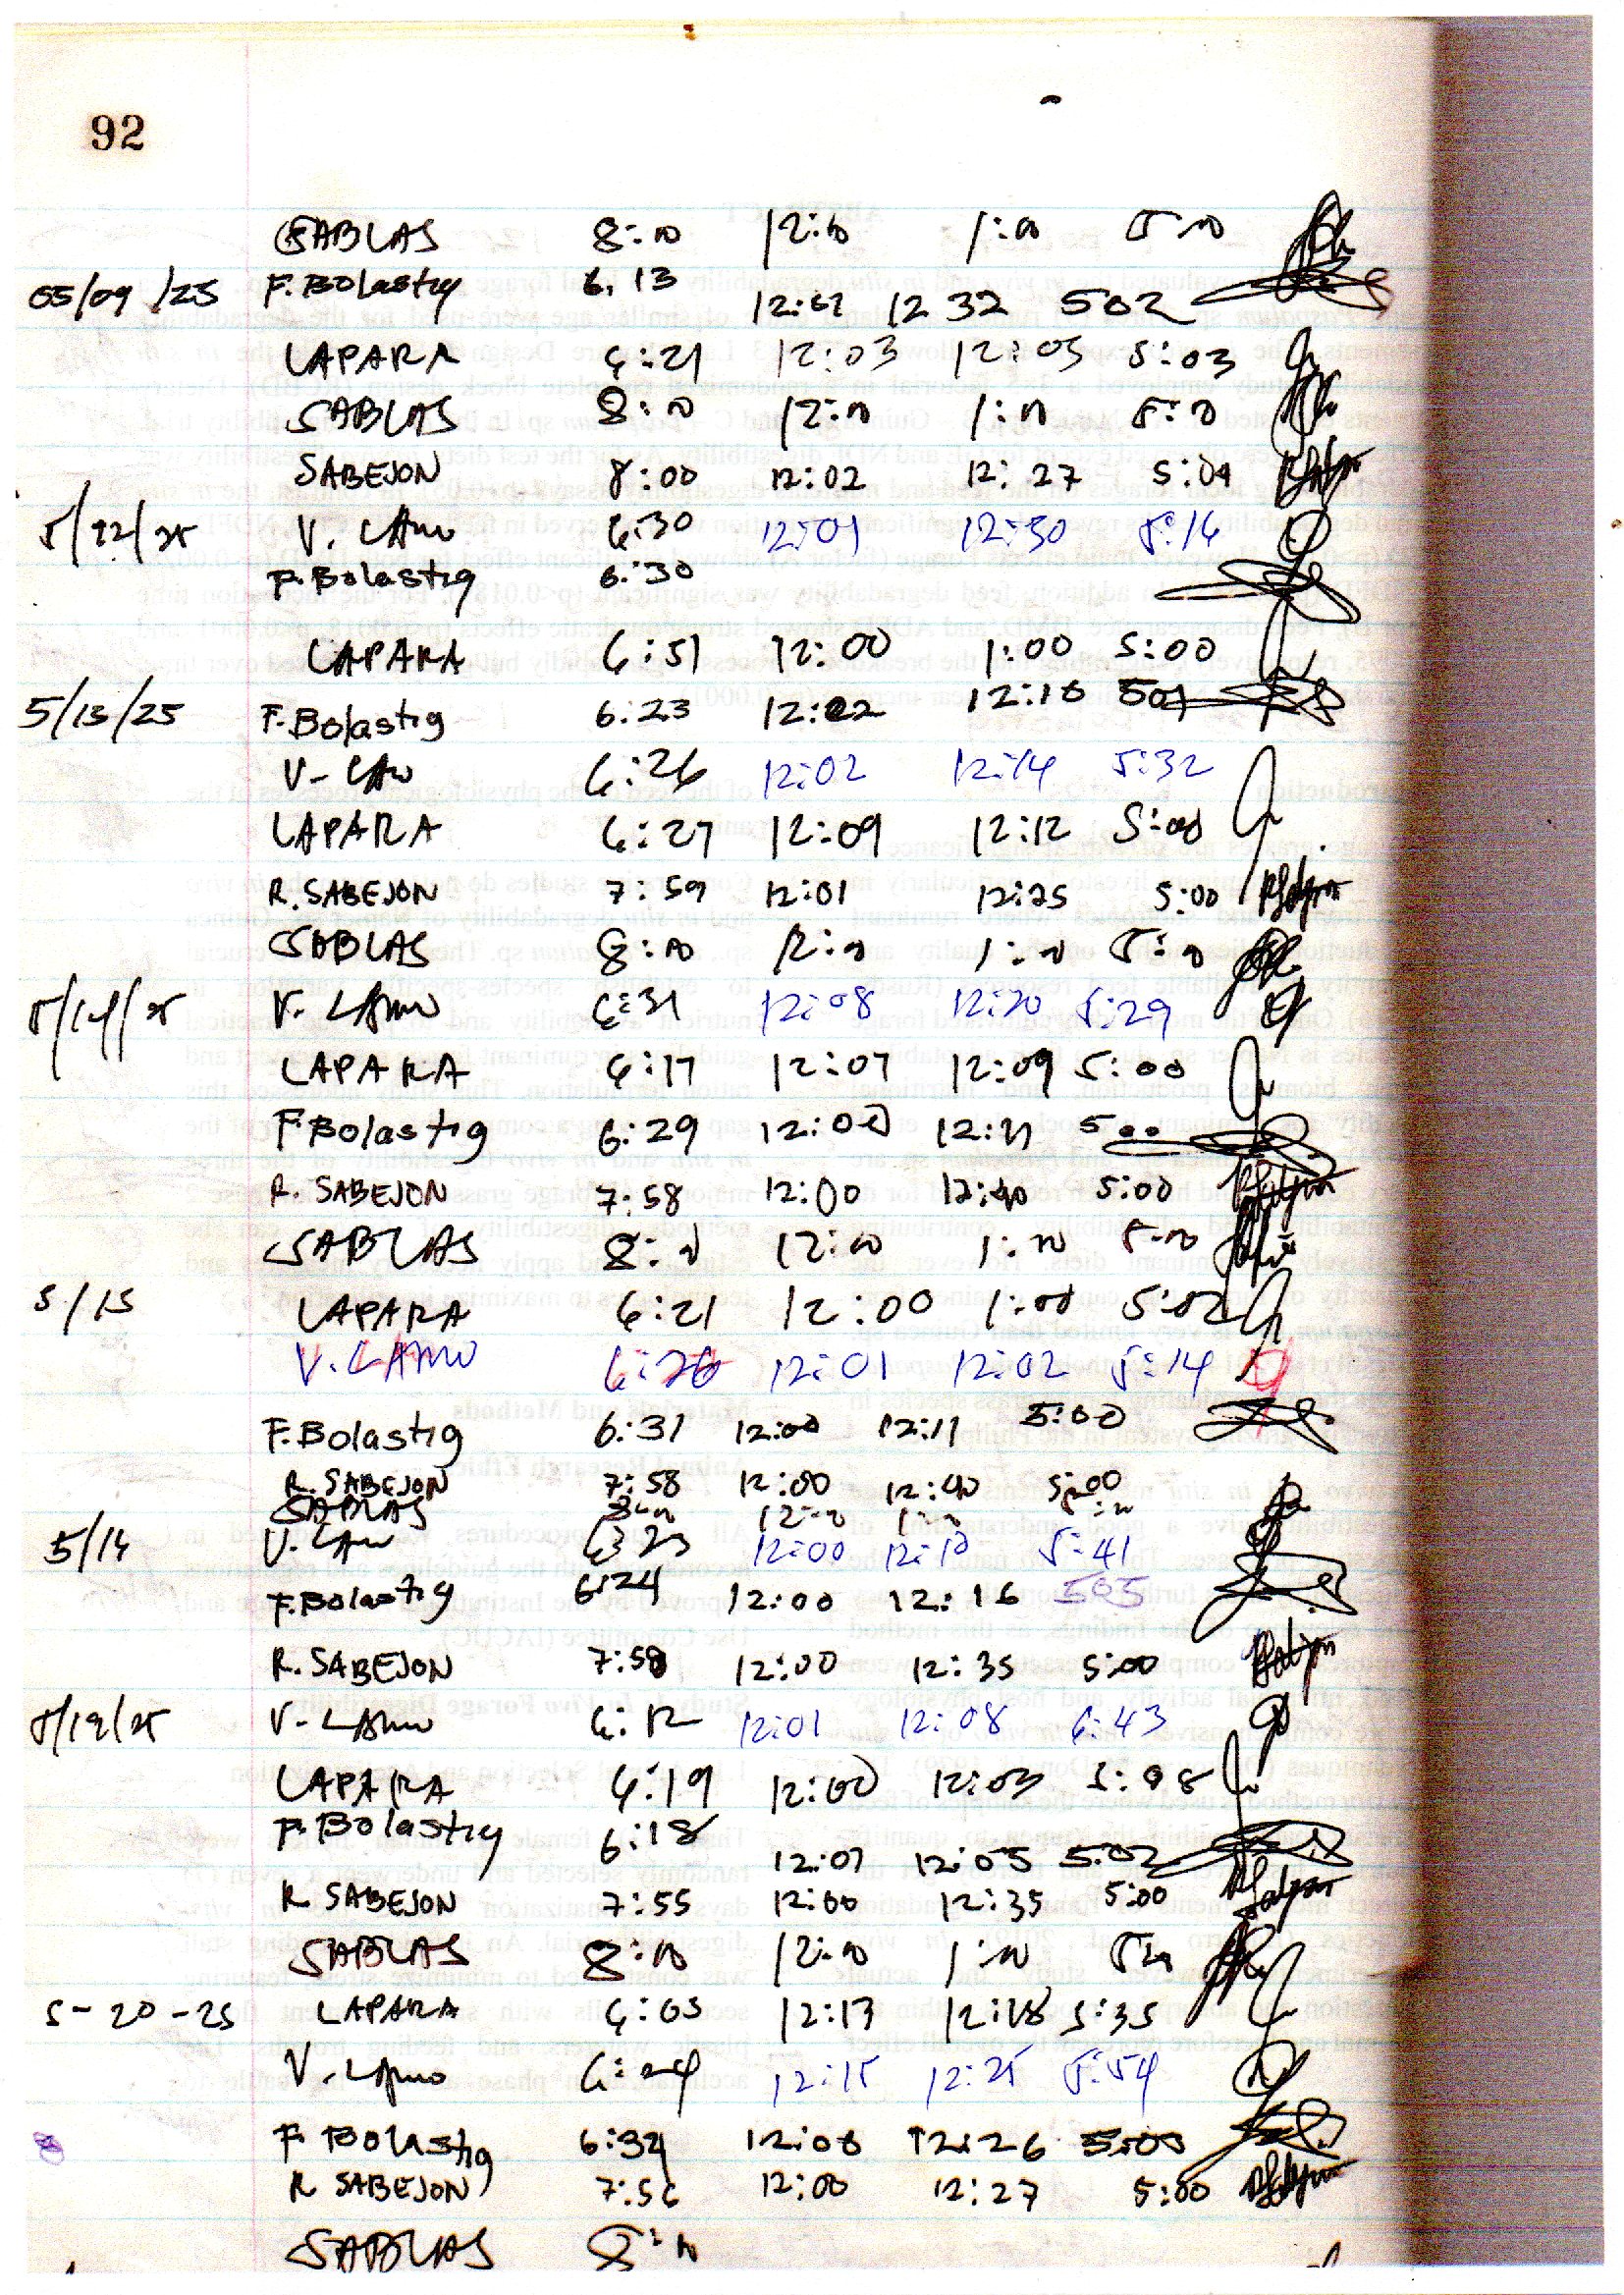 92
SABLAS 8:00 12:00 1:00 5:00
05/09/25 F. Bolastig 6:13 12:02 12 32 502
LAPARA 6:21 12:03 12:05 5:03
SABLAS 8:00 12:00 1:00 5:00
SABEJON 8:00 12:02 12:27 5:04
5/12/25 V. LAMO 6:30 12:01 12:30 5:16
F. Bolastig 6:30
LAPARA 6:51 12:00 1:00 5:00
5/13/25 F. Bolastig 6:23 12:02 12:10 501
V- LAMO 6:26 12:02 12:14 5:32
LAPARA 6:27 12:09 12:12 5:00
R. SABEJON 7:59 12:01 12:25 5:00
SABLAS 8:00 12:00 1:00 5:00
5/14/25 V. LAMO 6:31 12:08 12:20 5:29
LAPARA 6:17 12:07 12:09 5:00
F Bolastig 6:29 12:00 12:11 500
R. SABEJON 7:58 12:00 12:40 5:00
SABLAS 8:00 12:00 1:00 5:00
5/15 LAPARA 6:21 12:00 1:00 5:02
V. LAMO 6:26 12:01 12:02 5:14
F. Bolastig 6:31 12:00 12:11 5:00
R. SABEJON 7:58 12:00 12:40 5:00
SABLAS 8:00 12:00 1:00
5/16 V. LAMO 6:23 12:00 12:10 5:41
F. Bolastig 6:24 12:00 12:16 505
R. SABEJON 7:58 12:00 12:35 5:00
5/19/25 V- LAMO 6:12 12:01 12:08 6:43
LAPARA 6:19 12:00 12:03 5:08
F. Bolastig 6:18 12:01 12:05 5:02
R SABEJON 7:55 12:00 12:35 5:00
SABLAS 8:00 12:00 1:00 5:00
5-20-25 LAPARA 6:05 12:17 12:18 5:35
V. LAMO 6:24 12:15 12:25 5:54
F Bolastig 6:34 12:08 12:26 5:05
R SABEJON 7:56 12:00 12:27 5:00
SABLAS 8:00